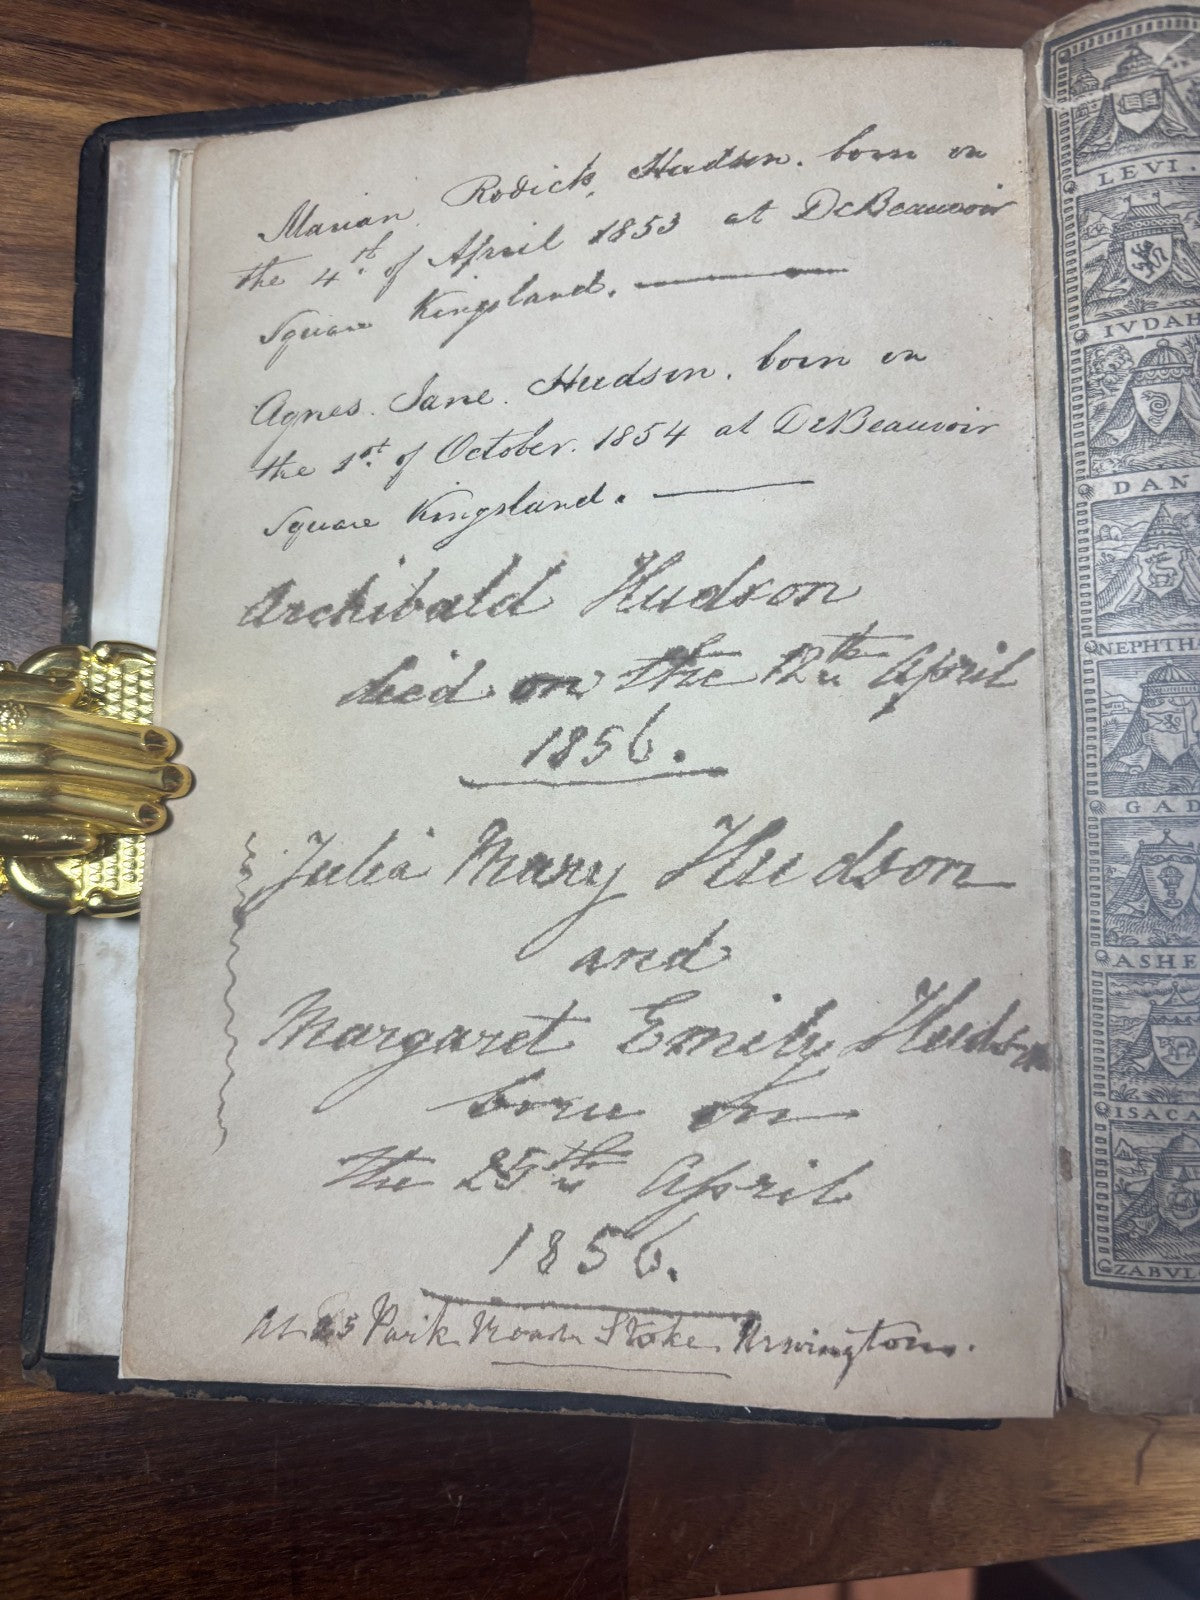 Marian. Rodick, Hudson. born on
the 4th. of April 1853 at DeBeauvoir
Square Kingsland.
Agnes. Jane. Hudson. born on
the 1st. of October. 1854 at DeBeauvoir
Square Kingsland.
Archibald Hudson
died on the 12th April
1856.
Julia Mary Hudson
and
Margaret Emily Hudson
born on
the 25th April
1856.
At Park Road Stoke Newington.
LEVI.
IVDAH
DAN
NEPHTHA
GAD
ASHE
ISACA
ZABVL